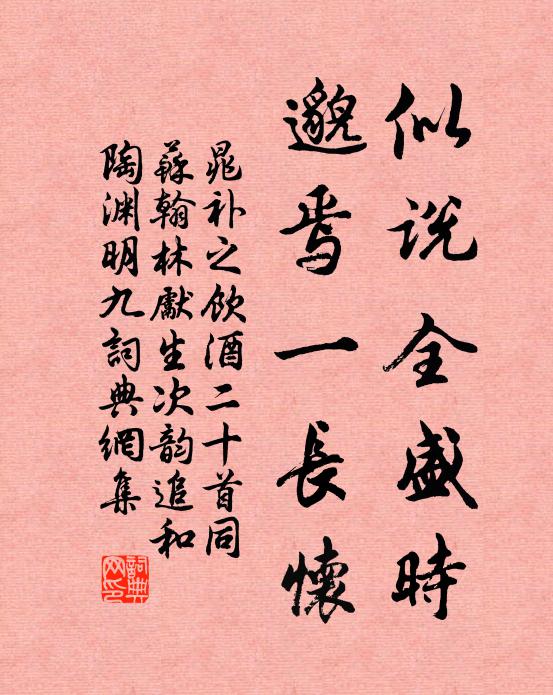 似说全盛時
邈焉一長懷
晁补之飲酒二十首同
蘇翰林獻生次韵追和
陶渊明九詞典網集
詞典
网印